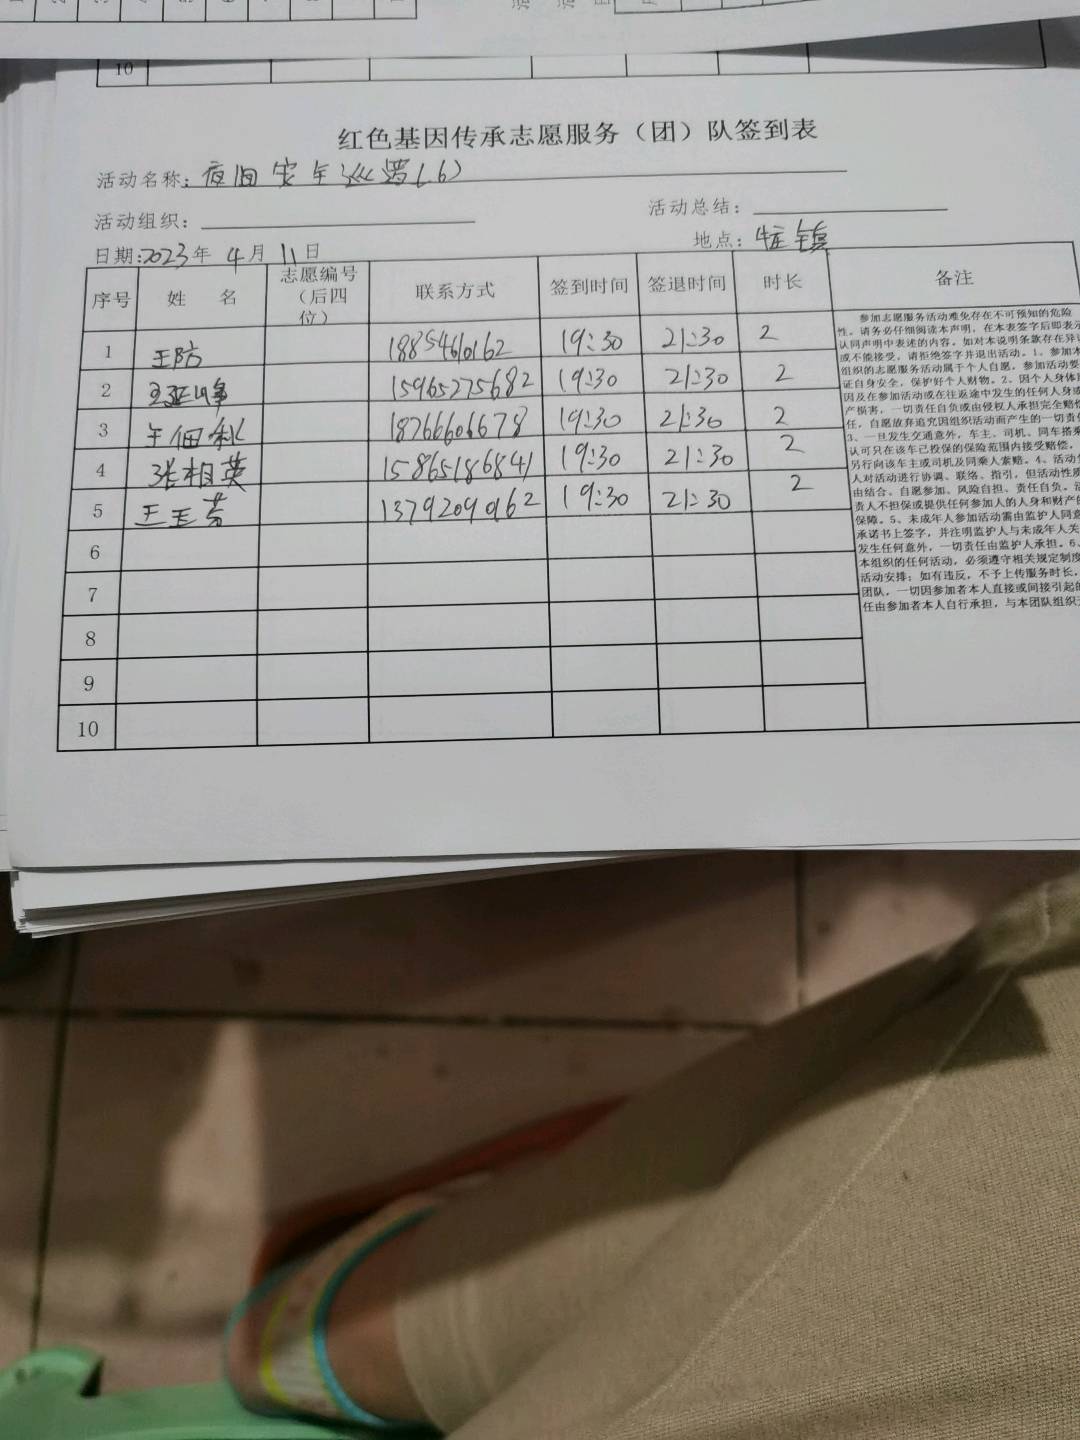 10
红色基因传承志愿服务（团）队签到表
活动名称：夜间安全巡逻（6）
活动组织：
活动总结：
日期：2023年 4月 11日
地点：镇
序号 姓 名 志愿编号（后四位） 联系方式 签到时间 签退时间 时长 备注
1 王防 18854610162 19:30 21:30 2
2 15965275682 19:30 21:30 2
3 18766606678 19:30 21:30 2
4 张相英 15865186841 19:30 21:30 2
5 王玉芳 13792090162 19:30 21:30 2
6
7
8
9
10
参加志愿服务活动难免存在不可预知的危险
性。请务必仔细阅读本声明，在本表签字后即表示
认同声明中表述的内容。如对本说明条款存在异议
或不能接受，请拒绝签字并退出活动。1、参加本
组织的志愿服务活动属于个人自愿，参加活动要
证自身安全，保护好个人财物。2、因个人身体
因及在参加活动或在往返途中发生的任何人身或
产损害，一切责任自负或由侵权人承担完全赔偿
任，自愿放弃追究因组织活动而产生的一切责任
3、一旦发生交通意外，车主、司机、同车搭乘
认可只在该车已投保的保险范围内接受赔偿，
另行向该车主或司机及同乘人索赔。4、活动
人对活动进行协调、联络、指引，但活动性质
由结合、自愿参加、风险自担、责任自负。活
责人不担保或提供任何参加人的人身和财产的
保障。5、未成年人参加活动需由监护人同意
承诺书上签字，并注明监护人与未成年人关
发生任何意外，一切责任由监护人承担。6、
本组织的任何活动，必须遵守相关规定制度
活动安排；如有违反，不予上传服务时长，
团队，一切因参加者本人直接或间接引起的
任由参加者本人自行承担，与本团队组织